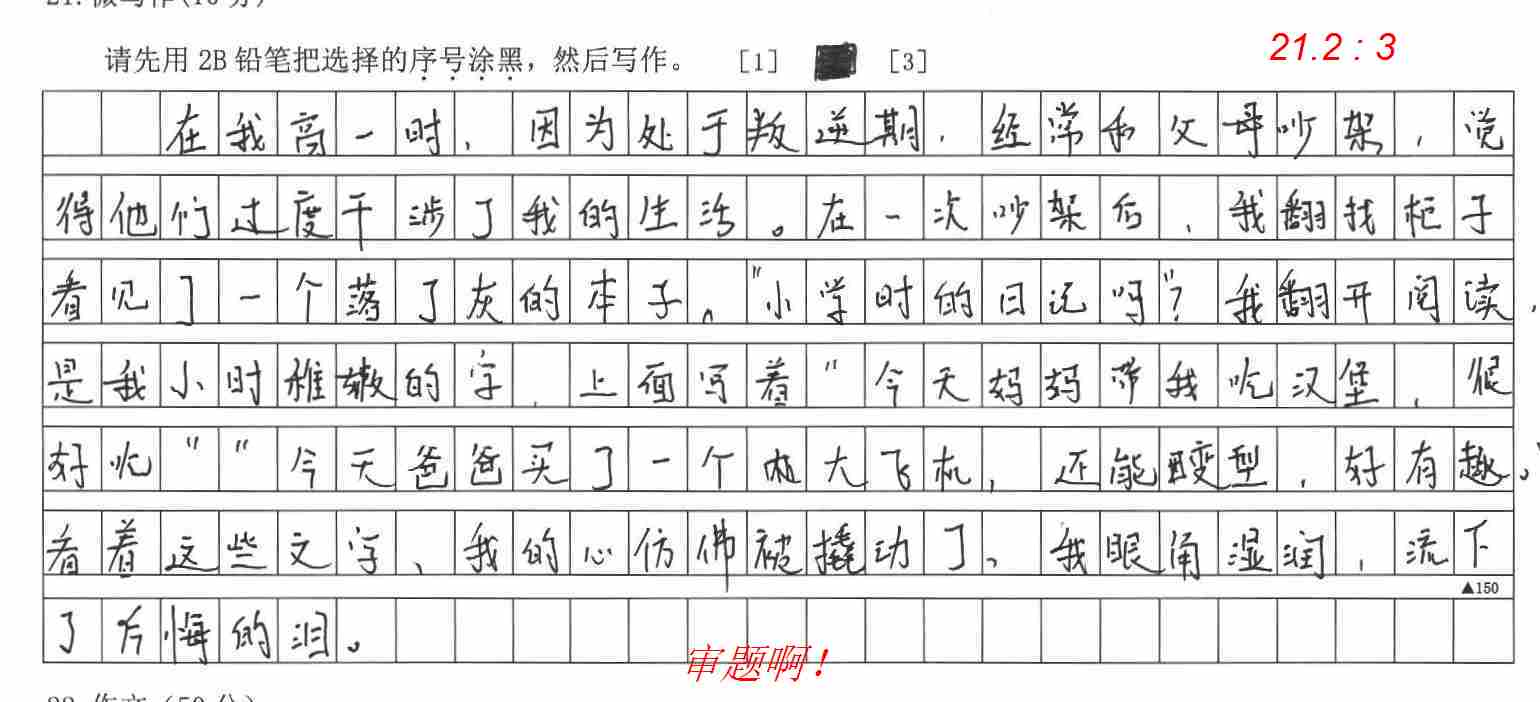 21.微写作(10分)
请先用2B铅笔把选择的序号涂黑，然后写作。 [1] [3]
21.2 : 3
在我高一时，因为处于叛逆期，经常和父母吵架，觉
得他们过度干涉了我的生活。在一次吵架后，我翻找柜子
看见了一个落了灰的本子。"小学时的日记吗"？我翻开阅读，
是我小时稚嫩的字，上面写着"今天妈妈带我吃汉堡，很
好吃""今天爸爸买了一个大飞机，还能变型，好有趣。"
看着这些文字，我的心仿佛被撬动了。我眼角湿润，流下
▲150
了后悔的泪。
审题啊！